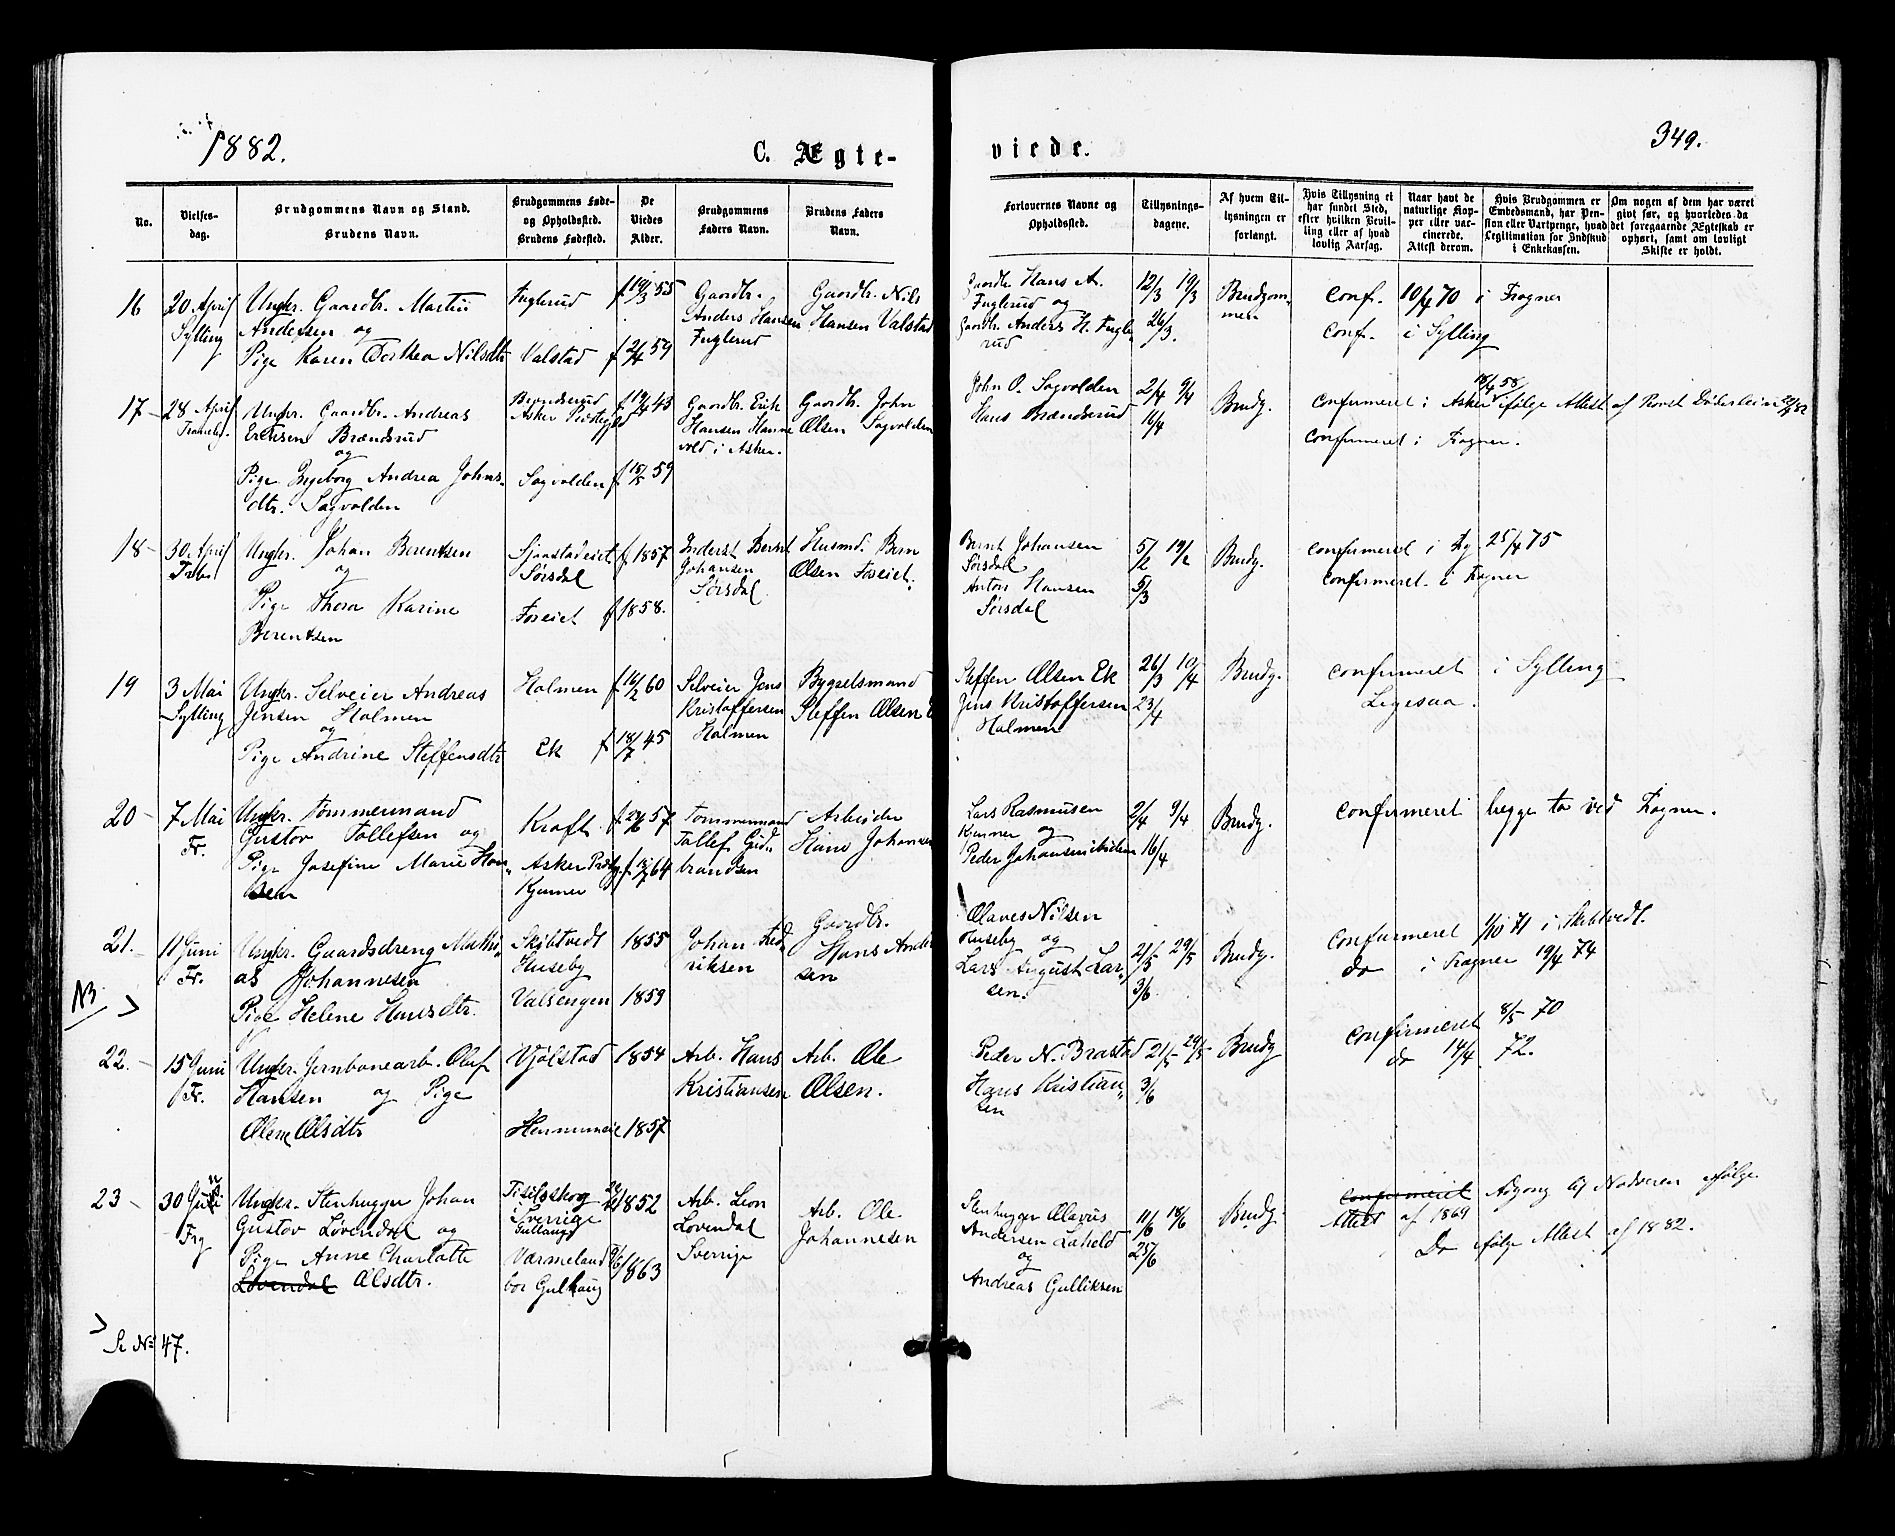 1882.
C. Ægte-
viede.
349.
No.
Vielses-
dag.
Brudgommens Navn og Stand.
Brudens Navn.
Brudgommens Føde-
og Opholdssted.
Brudens Fødested.
De
Viedes
Alder.
Brudgommens
Faders Navn.
Brudens Faders
Navn.
Forlovernes Navne og
Opholdssted.
Tillysnings-
dagene.
Af hvem Til-
lysningen er
forlangt.
Hvis Tillysning ei
har fundet Sted,
efter hvilken Bevil-
ling eller af hvad
lovlig Aarsag.
Naar havt de
naturlige Kop-
per eller vac-
cinerede.
Attest derom.
Hvis Brudgommen er
Embedsmand, har Pen-
sion eller Vartpenge, hvad
Legitimation for Indskud
i Enkekassen.
Om nogen af dem har været
givt før, og hvorledes da
det foregaaende Ægteskab er
ophørt, samt om lovligt
Skifte er holdt.
16
20 April
Sylling
Ungkr. Gaardbr. Martin
Andersen og
Pige Karen Dorthea Nilsdtr
Fuglerud
Valstad
f 19/3 55
f 21/4 59
Gaardbr.
Anders Hansen
Fuglerud
Gaardbr. Nils
Hansen Valstad
Gaardbr Hans A.
Fuglerud og
Gaardbr. Anders H. Fugle-
rud
12/3 19/3
26/3.
Brudgom-
men
Conf. 10/4 70 i Frogner
Conf. i Sylling
17
28 April
Ungkr. Gaardbr. Andreas
Eriksen Brændsrud
og
Pige Ingeborg Andrea Johns-
dtr. Sagvolden
Brændsrud
Asker Præstegjeld
Sagvolden
f 15/5 59
Gaardbr. Erik
Hansen Hanne
vold i Asker.
Gaardbr. John
Olsen Sagvolden
John O. Sagvolden
Hans Brændsrud
2/4 9/4
16/4
Brudg.
18/4 58
Confirmeret i Asker ifølge Attest af Provst Døderlein
Confirmeret i Frogner.
18
30 April
Ungkr. Johan Berentsen
og
Pige Thora Karine
Berentsen
Sjaastadeiet
Sørsdal
Foseiet
f 1857
f 1858.
Inderst Bernt
Johansen
Sørsdal
Husmd. Bern
Olsen Foseiet.
Bernt Johansen
Sørsdal
Anton Hansen
Sørsdal
5/2 19/2
5/3
Brudg.
confirmeret i Fg. 25/4 75
confirmeret i Frogner
19
3 Mai
Sylling
Ungkr. Selveier Andreas
Jensen Holmen
og
Pige Andrine Steffensdtr
Holmen
Ek
f 16/2 60
f 18/7 45
Selveier Jens
Kristoffersen
Holmen
Bygselsmand
Steffen Olsen E
Steffen Olsen Ek
Jens Kristoffersen
Holmen
26/3 10/4
23/4
Brudg.
confirmeret i Sylling
Ligesaa.
20
7 Mai
Fr.
Ungkr. Tømmermand
Gustav Tollefsen og
Pige Josefine Marie Han-
sen
Kraft
Asker Præstg.
Kjenner
f 24/6 57
f 18/7 64
Tømmermand
Tollef Gud-
brandsen
Arbeider
Hans Johansen
Lars Rasmusen
Kjenner og
Peder Johansen ibidem
2/4 9/4
16/4
Brudg.
confirmeret begge to ved Frogner.
21.
11 Juni
Fr.
Ungkr. Gaardsdreng Mathi-
as Johannesen
Pige Helene Hansdtr.
Skibtvedt
Huseby
Valsengen
1855
1859
Johan Fred-
riksen
Gaardbr.
Hans Ander
sen
Olaves Nilsen
Huseby og
Lars August Lar-
sen.
21/5 29/5
3/6.
Brudg.
confirmeret 1/10 71 i Skibtvedt.
do i Frogner 19/4 74
NB >
22.
15 Juni
Fr.
Ungkr. Jernbanearb. Oluf
Hansen og Pige
Olene Olsdtr
Vjølstad
1854
1857
Arb. Hans
Kristiansen
Arb. Ole
Olsen.
Peder N. Brastad
Hans Kristian-
sen
21/5 29/5
3/6
Brudg
confirmeret 8/5 70
do 14/4 72.
23
30 Juni
Frg
Ungkr. Stenhugger Johan
Gustav Løvendal og
Pige Anne Charlotte
Løvendal Olsdtr.
Sverrige
Gulhaug
Värmeland
bor Gulhaug
1852
1863
Arb. Leon
Løvendal
Sverrige
Arb. Ole
Johannesen
Stenhugger Olavus
Andersen
og
Andreas Gulliksen
11/6 18/6
25/6
Brudg.
confirmeret Adgang til Nadveren ifølge
Attest af 1869
Do ifølge Attest af 1882.
>
Se No 47.